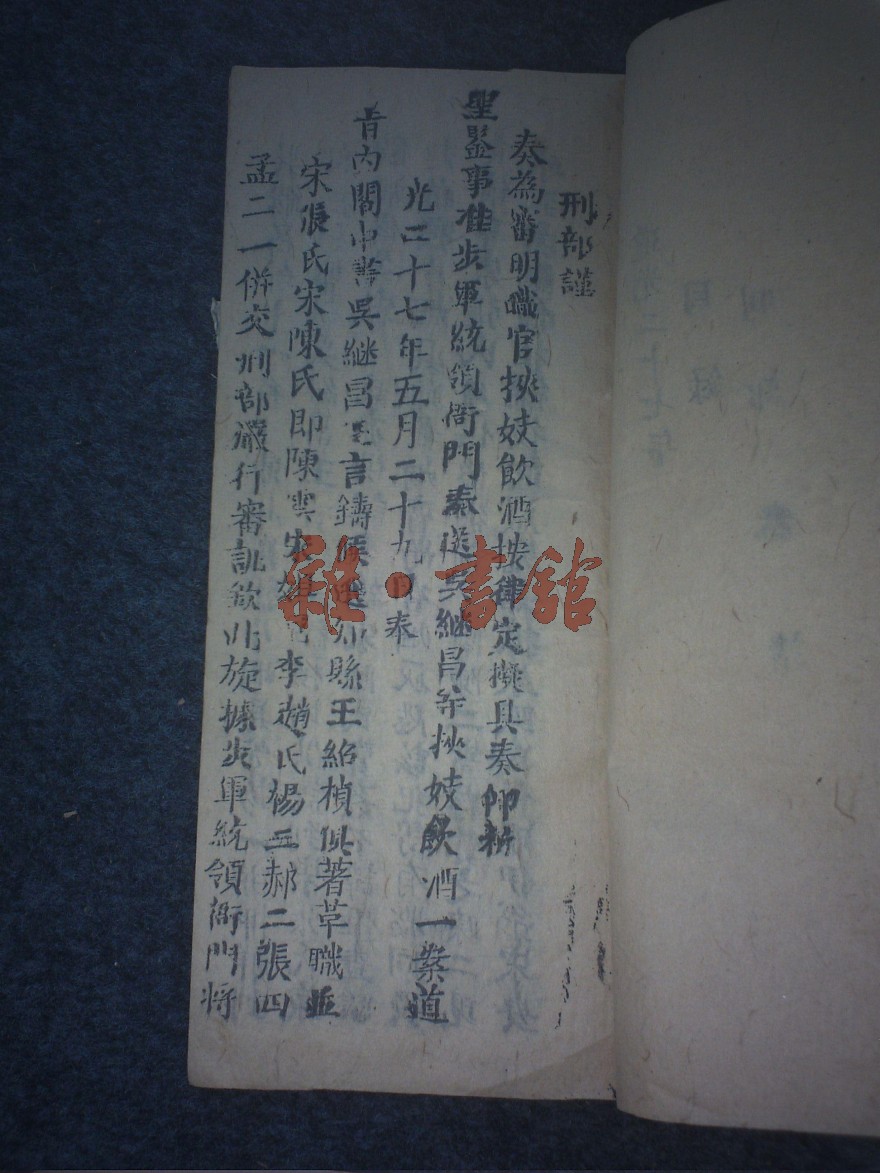 刑部謹
奏為審明職官挾妓飲酒按律定擬具奏仰祈
聖鑒事准步軍統領衙門奏送吳継昌等挾妓飲酒一案道
光二十七年五月二十九日奉
旨內閣中書吳継昌 言鑄候選知縣王紹楨俱著革職並
宋張氏宋陳氏即陳雲 李趙氏楊五郝二張四
孟二一併交刑部嚴行審訊欽此旋據步軍統領衙門將
雜·書館